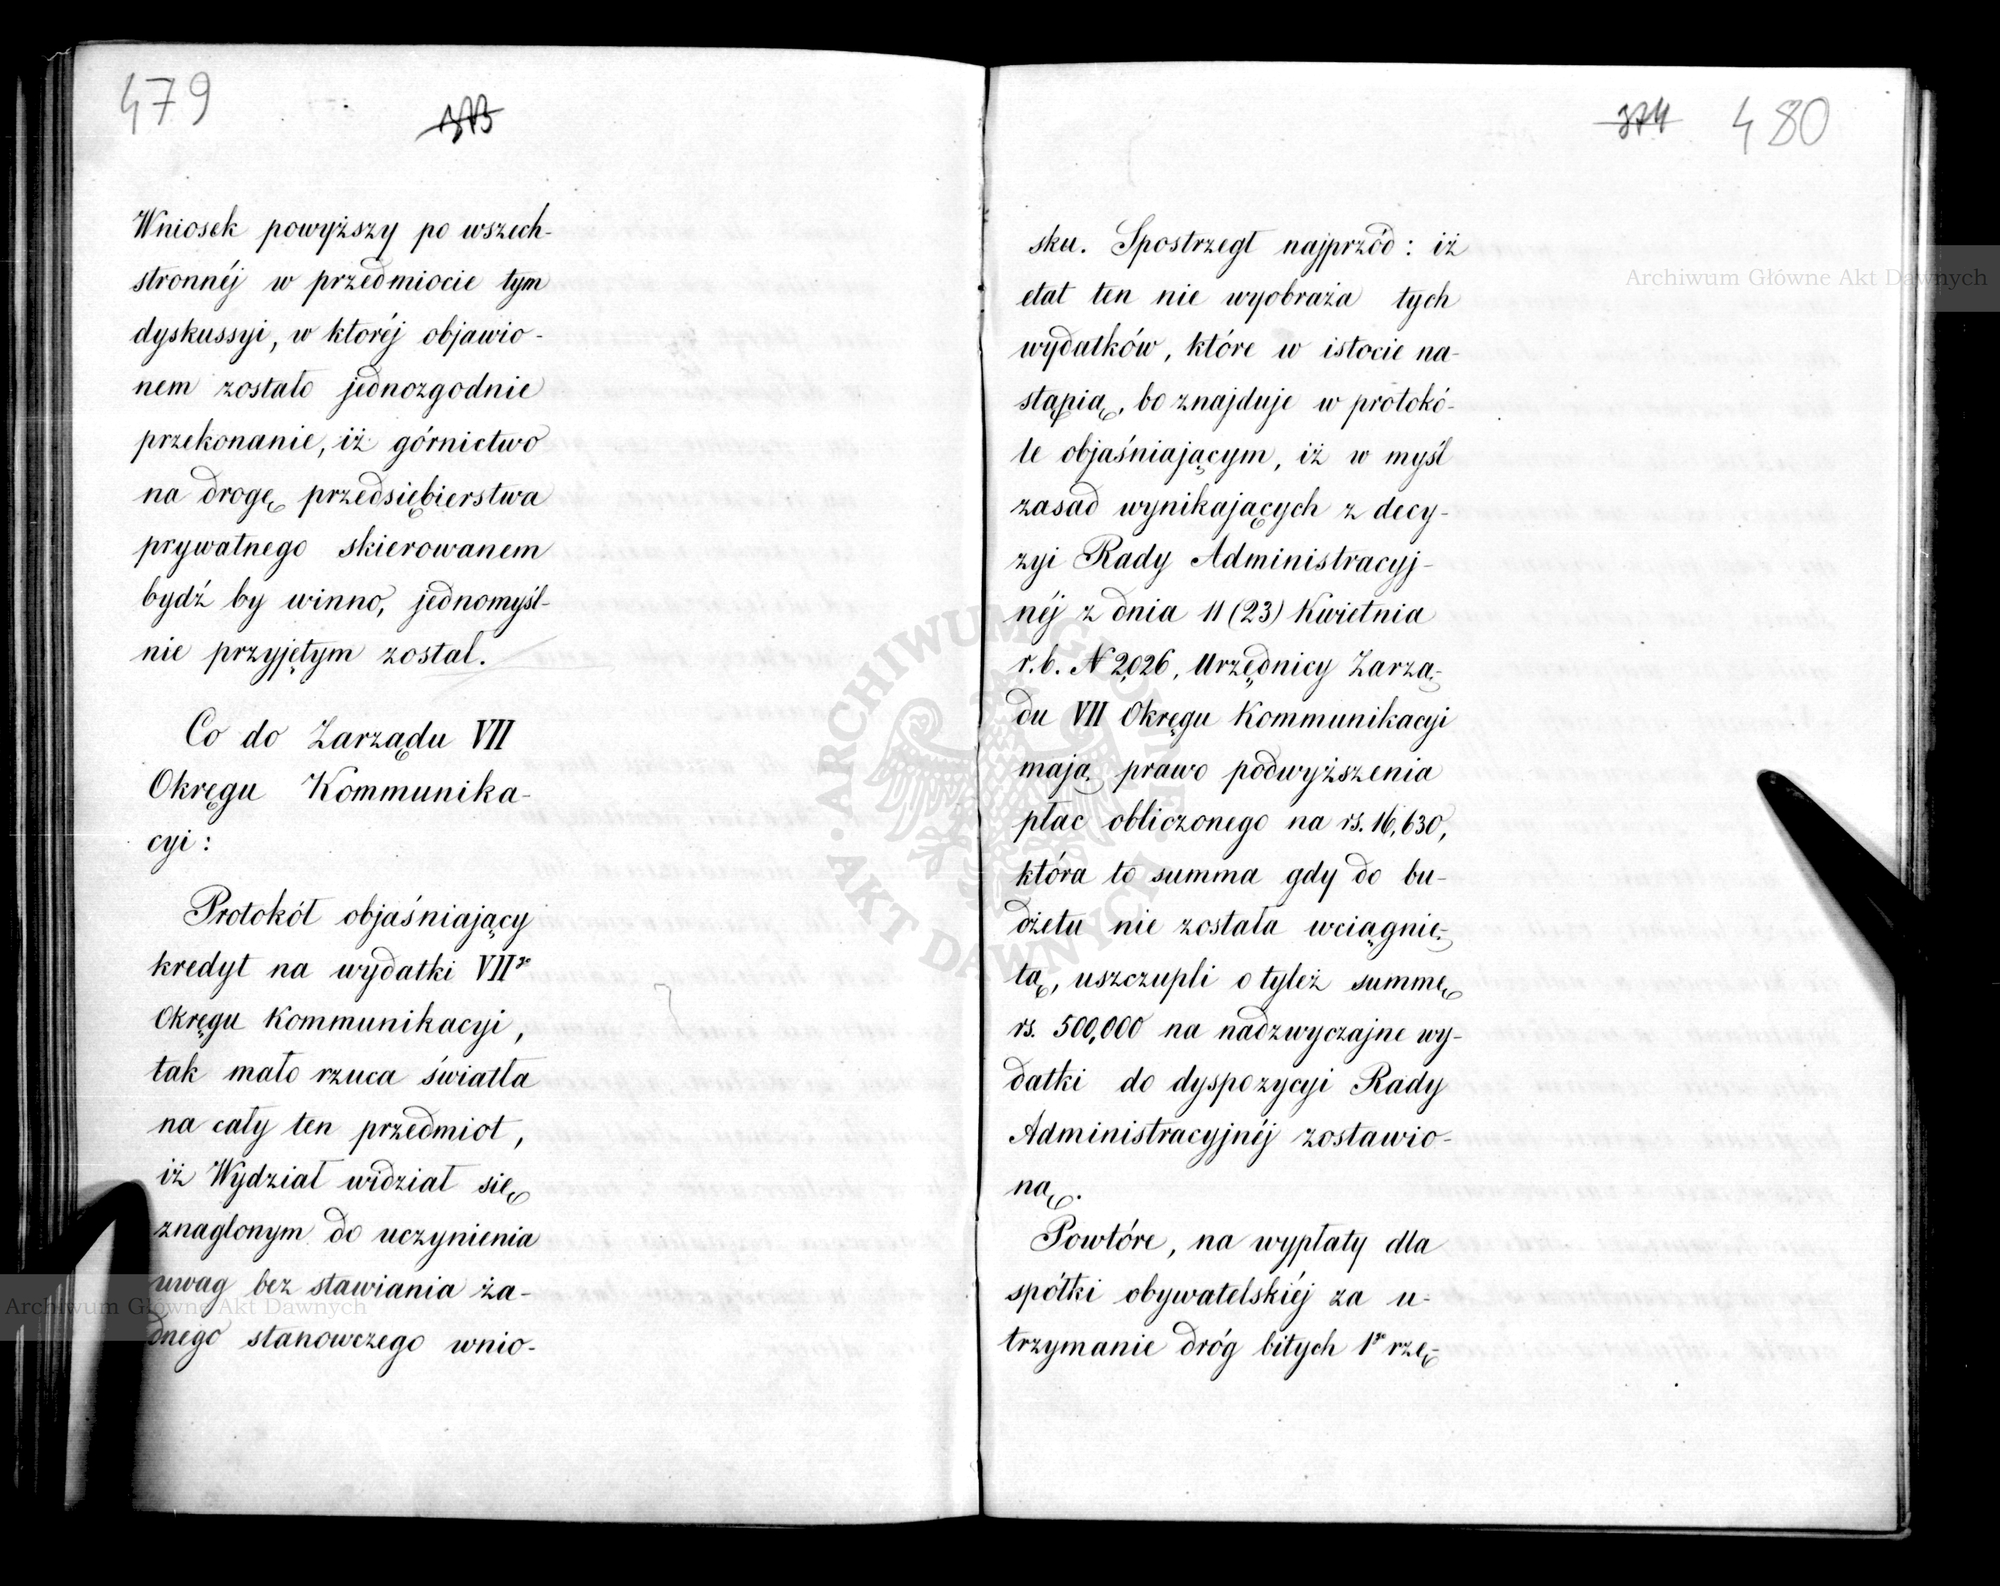 479
373
Wniosek powyższy po wszech-
stronnéj w przedmiocie tym
dyskussyi, w któréj objawio-
nem zostało jednozgodnie
przekonanie, iż górnictwo
na drogę przedsiębierstwa
prywatnego skierowanem
bydź by winno, jednomyśl-
nie przyjętym został.
Co do Zarządu VII
Okręgu Kommunika-
cyi:
Protokół objaśniający
kredyt na wydatki VIIgo
Okręgu Kommunikacyi,
tak mało rzuca światła
na cały ten przedmiot,
iż Wydział widział się
znaglonym do uczynienia
uwag bez stawiania ża-
dnego stanowczego wnio-
374 480
sku. Spostrzegł najprzód: iż
etat ten nie wyobraża tych
wydatków, które w istocie na-
stąpią, bo znajduje w protokó-
le objaśniającym, iż w myśl
zasad wynikających z decy-
zyi Rady Administracyj-
néj z dnia 11 (23) Kwietnia
r. b. N 2,026, Urzędnicy Zarzą-
du VII Okręgu Kommunikacyi
mają prawo podwyższenia
płac obliczonego na rs. 16,630,
która to summa gdy do bu-
dżetu nie została wciągnię-
tą, uszczupli o tyleż summę
rs. 500,000 na nadzwyczajne wy-
datki do dyspozycyi Rady
Administracyjnéj zostawio-
ną.
Powtóre, na wypłaty dla
spółki obywatelskiéj za u-
trzymanie dróg bitych 1go rzę-
Archiwum Główne Akt Dawnych
Archiwum Główne Akt Dawnych
ARCHIWUM GŁÓWNE AKT DAWNYCH